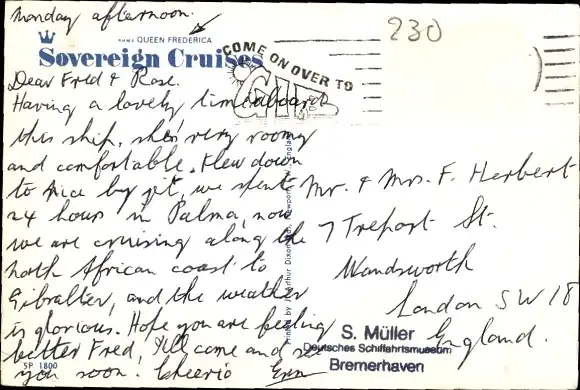 Monday afternoon.
R.H.M.S. QUEEN FREDERICA
Sovereign Cruises
COME ON OVER TO
GIB
230
Dear Fred & Rose.
Having a lovely time aboard
this ship, she's very roomy
and comfortable. Flew down
to Nice by jet, we spent
24 hours in Palma, now
we are cruising along the
north African coast to
Gibralter, and the weather
is glorious. Hope you are feeling
better Fred, I'll come and see
you soon. Cheerio
Mr. & Mrs. F. Herbert
7 Treport St.
Wandsworth
London SW18
England.
Printed by J. Arthur Dixon
S. Müller
Deutsches Schiffahrtsmuseum
Bremerhaven
SP 1800